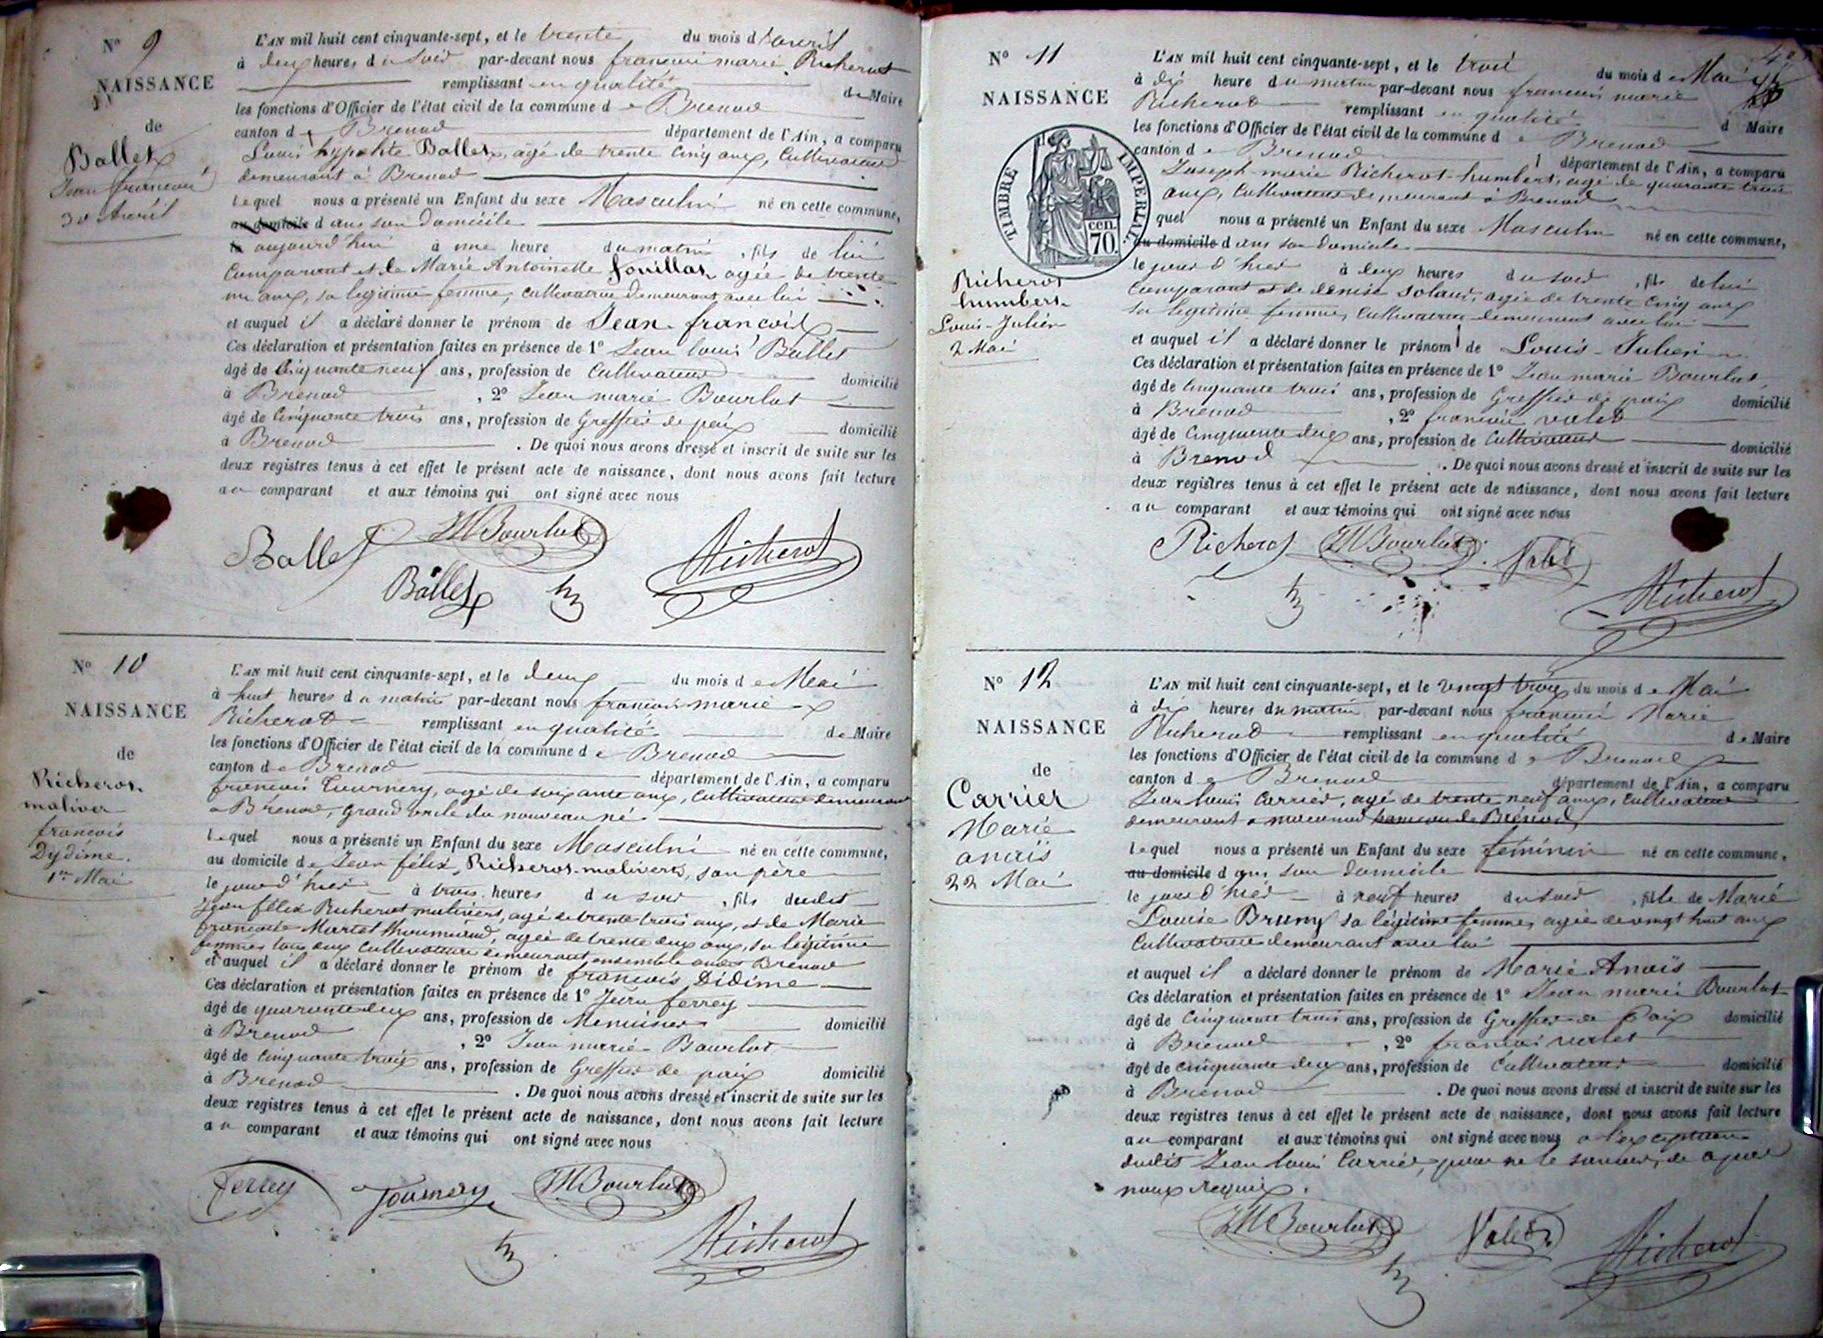 N° 9
NAISSANCE
de
Ballet
Jean françois
30 Avril
L'AN mil huit cent cinquante-sept, et le trente du mois d'avril
à deux heures du soir par-devant nous françois marie Richerot
remplissant en qualité de Maire
les fonctions d'Officier de l'état civil de la commune de Brenod
canton de Brenod département de l'Ain, a comparu
Louis hypolite Ballet, agé de trente cinq ans, Cultivateur
demeurant à Brenod
lequel nous a présenté un Enfant du sexe Masculin né en cette commune,
au domicile dans son domicile
le aujourd'hui à une heure du matin, fils de lui
Comparant et de Marie Antoinette Jouillar agée de trente
un ans, sa legitime femme, cultivatrice demeurant avec lui
et auquel il a déclaré donner le prénom de Jean françois
Ces déclaration et présentation faites en présence de 1° Jean louis Ballet
âgé de Cinquante neuf ans, profession de Cultivateur domicilié
à Brenod, 2° Jean marie Bourlot
âgé de Cinquante trois ans, profession de Greffier de paix domicilié
à Brenod. De quoi nous avons dressé et inscrit de suite sur les
deux registres tenus à cet effet le présent acte de naissance, dont nous avons fait lecture
au comparant et aux témoins qui ont signé avec nous
Ballet JMBourlot Richerot
Ballet
N° 10
NAISSANCE
de
Richerot
maliver
françois
Dydime.
1er Mai
L'AN mil huit cent cinquante-sept, et le deux du mois de Mai
à huit heures du matin par-devant nous françois marie
Richerot remplissant en qualité de Maire
les fonctions d'Officier de l'état civil de la commune de Brenod
canton de Brenod département de l'Ain, a comparu
françois Tournery, agé de soixante ans, Cultivateur demeurant
à Brenod, grand oncle du nouveau né
lequel nous a présenté un Enfant du sexe Masculin né en cette commune,
au domicile de Jean félix Richerot-maliverts, son père
le jour d'hier à trois heures du soir, fils dudit
Jean félix Richerot maliverts, agé de trente trois ans, et de Marie
françoise Martet agée de trente deux ans, sa légitime
femme, tous deux Cultivateurs demeurant ensemble Brenod
et auquel il a déclaré donner le prénom de françois Didime
Ces déclaration et présentation faites en présence de 1° Jean ferrey
âgé de quarante deux ans, profession de Menuisier domicilié
à Brenod, 2° Jean marie Bourlot
âgé de Cinquante trois ans, profession de Greffier de paix domicilié
à Brenod. De quoi nous avons dressé et inscrit de suite sur les
deux registres tenus à cet effet le présent acte de naissance, dont nous avons fait lecture
au comparant et aux témoins qui ont signé avec nous
ferrey Tournery JMBourlot
Richerot
N° 11
NAISSANCE
TIMBRE IMPÉRIAL
cen.
70.
Richerot
humbert
Louis-Julien
2 Mai
L'AN mil huit cent cinquante-sept, et le trois du mois de Mai
à dix heure du matin par-devant nous françois marie
Richerot remplissant en qualité d Maire
les fonctions d'Officier de l'état civil de la commune de Brenod
canton de Brenod département de l'Ain, a comparu
Joseph marie Richerot-humbert, agé de quarante trois
ans, Cultivateur demeurant à Brenod
quel nous a présenté un Enfant du sexe Masculin né en cette commune,
au domicile dans son domicile
le jour d'hier à deux heures du soir, fils de lui
Comparant et de denise Soland, agée de trente cinq ans
sa legitime femme, Cultivatrice demeurant avec lui
et auquel il a déclaré donner le prénom de Louis-Julien
Ces déclaration et présentation faites en présence de 1° Jean marie Bourlot
âgé de Cinquante trois ans, profession de Greffier de paix domicilié
à Brenod, 2° françois valet
âgé de Cinquante deux ans, profession de Cultivateur domicilié
à Brenod. De quoi nous avons dressé et inscrit de suite sur les
deux registres tenus à cet effet le présent acte de naissance, dont nous avons fait lecture
au comparant et aux témoins qui ont signé avec nous
Richerot JMBourlot Valet
Richerot
N° 12
NAISSANCE
de
Carrier
Marie
anaïs
22 Mai
L'AN mil huit cent cinquante-sept, et le vingt trois du mois de Mai
à dix heures du matin par-devant nous françois Marie
Richerot remplissant en qualité de Maire
les fonctions d'Officier de l'état civil de la commune de Brenod
canton de Brenod département de l'Ain, a comparu
Jean louis Carrier, agé de trente neuf ans, Cultivateur
demeurant à hameau de Brenod
lequel nous a présenté un Enfant du sexe féminin né en cette commune,
au domicile dans son domicile
le jour d'hier à neuf heures du soir, fille de Marie
Louise Bruny sa légitime femme, agée de vingt huit ans
Cultivatrice demeurant avec lui
et auquel il a déclaré donner le prénom de Marie Anaïs
Ces déclaration et présentation faites en présence de 1° Jean marie Bourlot
âgé de Cinquante trois ans, profession de Greffier de Paix domicilié
à Brenod, 2° françois valet
âgé de cinquante deux ans, profession de Cultivateur domicilié
à Brenod. De quoi nous avons dressé et inscrit de suite sur les
deux registres tenus à cet effet le présent acte de naissance, dont nous avons fait lecture
au comparant et aux témoins qui ont signé avec nous a l'exception
dudit Jean louis Carrier, pour ne le savoir, de ce par
nous requis.
JMBourlot Valet Richerot